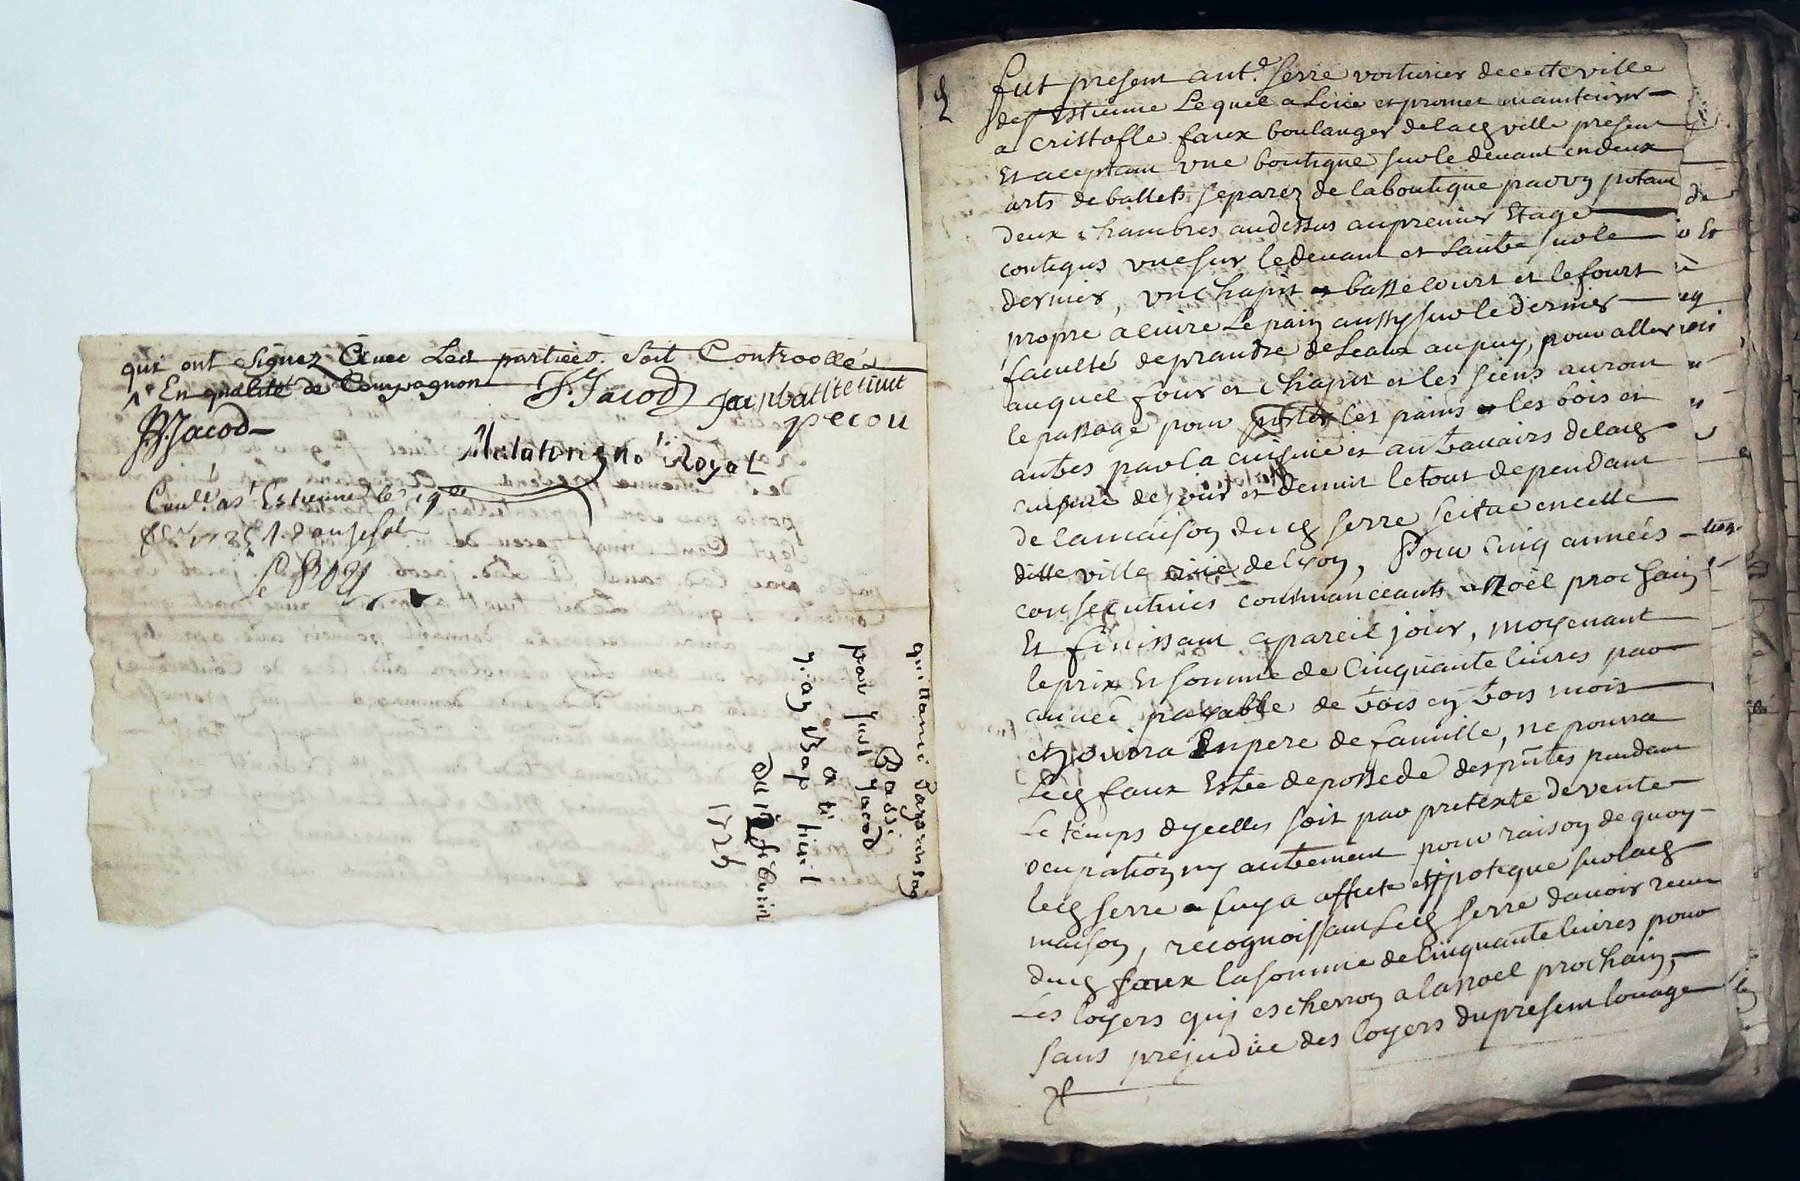 qui ont signez avec Led parties. Soit Controollé
1e En qualité de Compagnon J. Jacod Jan batite tiuit
JJ. Jacod pecou
Royal
Conlle a st Estienne le 19e
Le Roy
quittance
passé
par Jul Jacod
a ti
Jan Bap tiuit
du 19 febvrier
1725
fut present antd. serre voiturier de cette ville
de st Estienne Lequel a Loüe et promet maintenir
a cristofle faux boulanger de lad ville present
Et aceptant vne boutique sur le devant en deux
arts de ballets separez de la boutique par vn potant
deux chambres au dessus au premier Etage
contigus vne sur le devant et Lautre sur le
dernier, vn chapit et basse court et le fourt
propre a cuire Le pain aussy sur le dernier
faculté de prandre de Leaux au puy, pour aller
auquel four et chapit et les siens auront
le passage pour porter les pains et les bois et
autres par la cuisine et au travairs de lad
cuisine de jour et de nuit le tout dependant
de la maison dud serre scitue en cette
ditte ville rüe de lyon, Pour Cinq années
consecutives commanceants a Noël prochain
Et finissant a pareil jour, moyenant
le prix Et somme de Cinquante livres par
année, payable de trois en trois mois
et jouira En pere de famille, ne pourra
Led faux Estre depossedé des puttes pendant
Le temps dycelles soit par pretexte de vente
ocupation ny autrement pour raison de quoy
led serre a luy a affecte et ypoteque sur lad
maison, recognoissant Led serre davoir receu
dud faux la somme de Cinquante livres pour
Les loyers quy escherron a la noel prochain,
sans prejudice des loyers du present louage